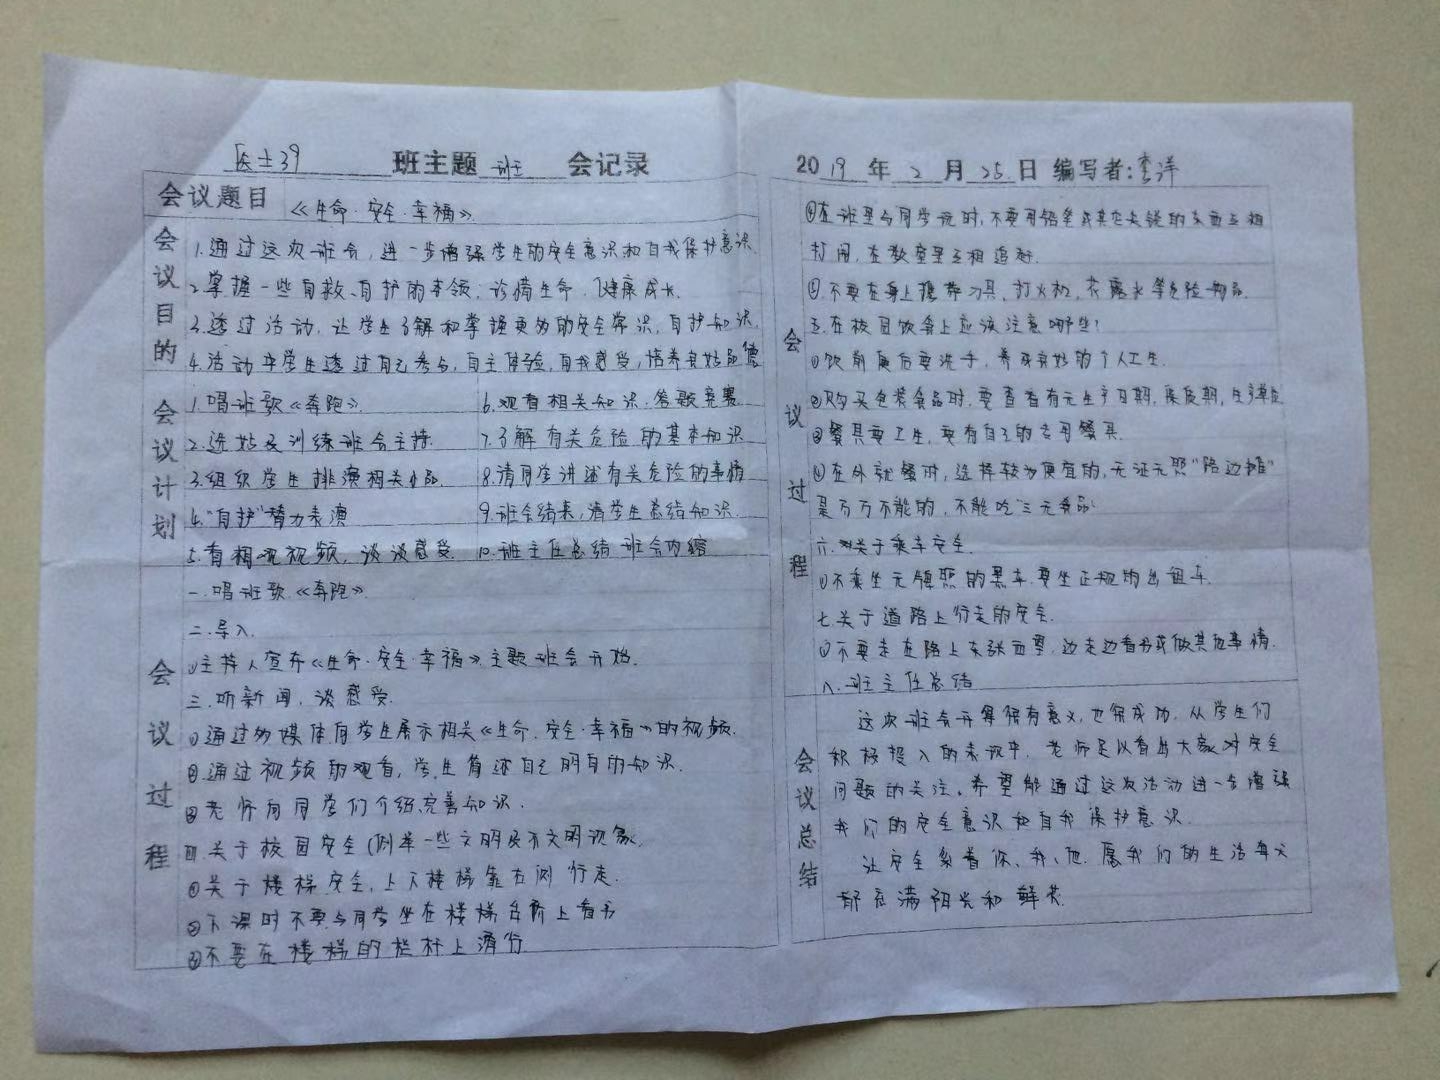 医士39 班主题 班 会记录
会议题目 《生命·安全·幸福》
会议目的
1.通过这次班会,进一步增强学生的安全意识和自我保护意识
2.掌握一些自救、自护的本领,珍惜生命,健康成长.
3.透过活动,让学生了解和掌握更多的安全常识,自护知识,
4.活动中学生透过自己参与,自主体验,自我感受,培养良好品德
会议计划
1.唱班歌《奔跑》.
2.选好及训练班会主持.
3.组织学生排演相关小品.
4."自护"智力表演
5.看相关视频,谈谈感受.
6.观看相关知识,答题竞赛.
7.了解有关危险的基本知识
8.请同学讲述有关危险的事情
9.班会结束,请学生总结知识.
10.班主任总结班会内容
会议过程
一.唱班歌《奔跑》.
二.导入.
①主持人宣布《生命·安全·幸福》主题班会开始.
三.听新闻,谈感受.
①通过多媒体向学生展示相关《生命·安全·幸福》的视频.
②通过视频的观看,学生自述自己明白的知识.
③老师向同学们介绍完善知识.
四.关于校园安全(例举一些文明及不文明现象.
①关于楼梯安全,上下楼梯靠右侧行走.
②下课时不要与同学坐在楼梯台阶上看书
③不要在楼梯的栏杆上滑行
2019 年 2 月 25 日 编写者:李洋
会议过程
④在班里与同学玩时,不要用铅笔或其它尖锐的东西互相
打闹,在教室里互相追赶.
⑤.不要在身上携带刀具,打火机,花露水等危险物品.
五.在校园饮食上应该注意哪些!
①饭前便后要洗手,养成良好的个人卫生.
②购买包装食品时,要查看有无生产日期,保质期,生产单位
③餐具要卫生,要有自己的专用餐具.
④在外就餐时,选择较为便宜的,无证无照"路边摊"
是万万不能的,不能吃"三无食品"
六.对关于乘车安全.
①不乘坐无牌照的黑车,要坐正规的出租车.
七.关于道路上行走的安全.
①不要走在路上东张西望,边走边看书或做其他事情.
八.班主任总结
会议总结
这次班会开得很有意义,也很成功,从学生们
积极投入的表现中,老师足以看出大家对安全
问题的关注。希望能通过这次活动进一步增强
我们的安全意识和自我保护意识.
让安全系着你、我、他.愿我们的生活每天
都充满阳光和鲜花.